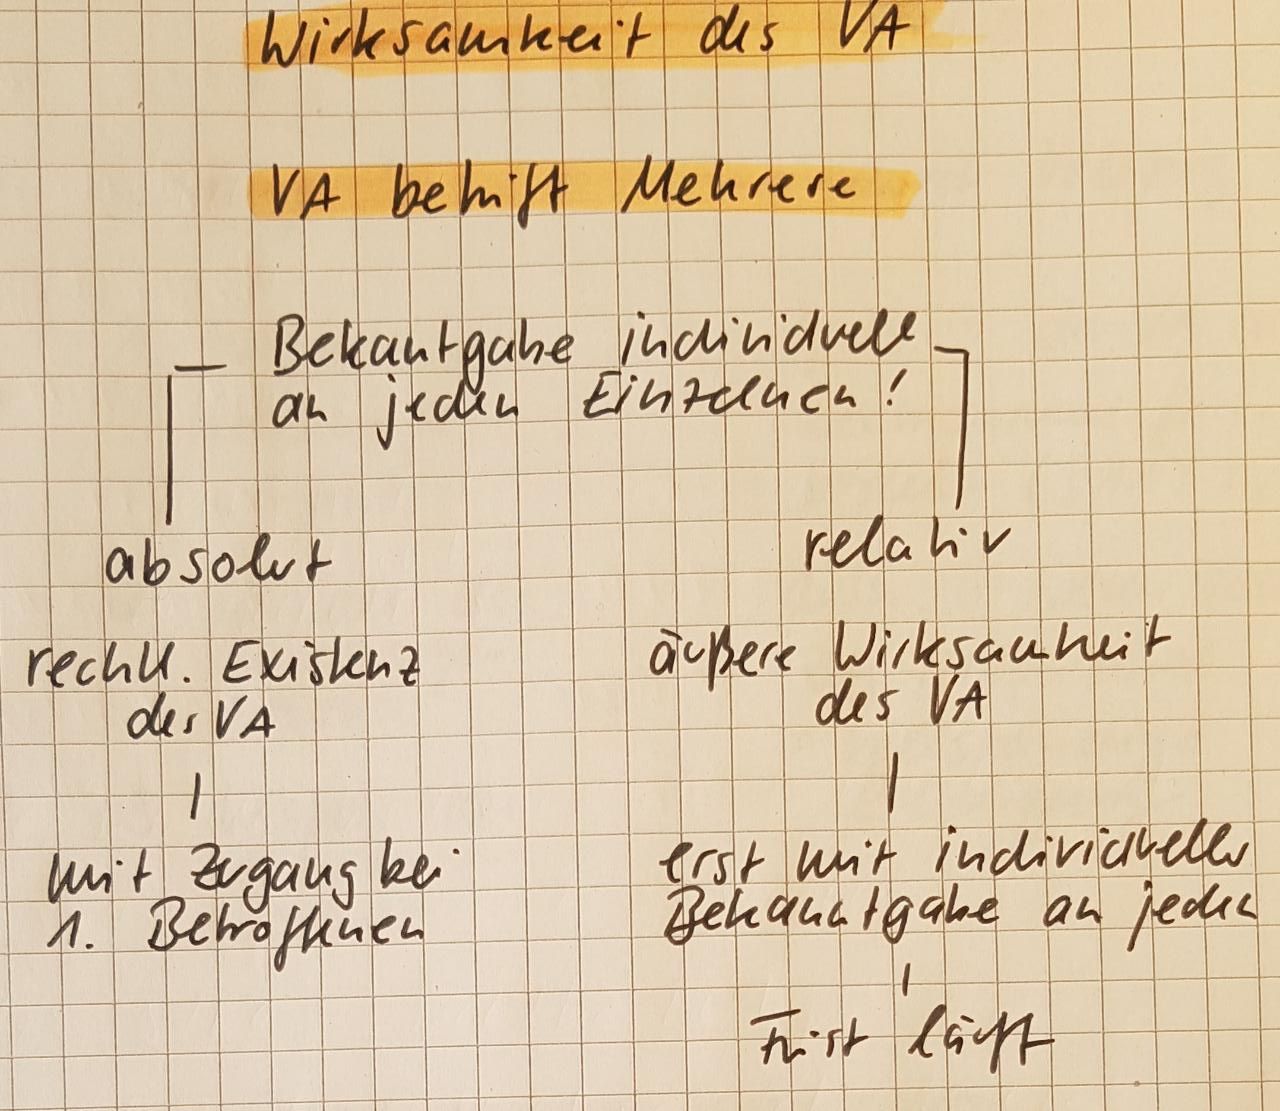 Wirksamkeit des VA
VA betrifft Mehrere
Bekantgabe individuell
an jeden Einzelnen!
absolut
relativ
rechtl. Existenz
des VA
äußere Wirksamkeit
des VA
mit Zugang bei
1. Betroffenen
erst mit individueller
Bekanntgabe an jeden
Frist läuft